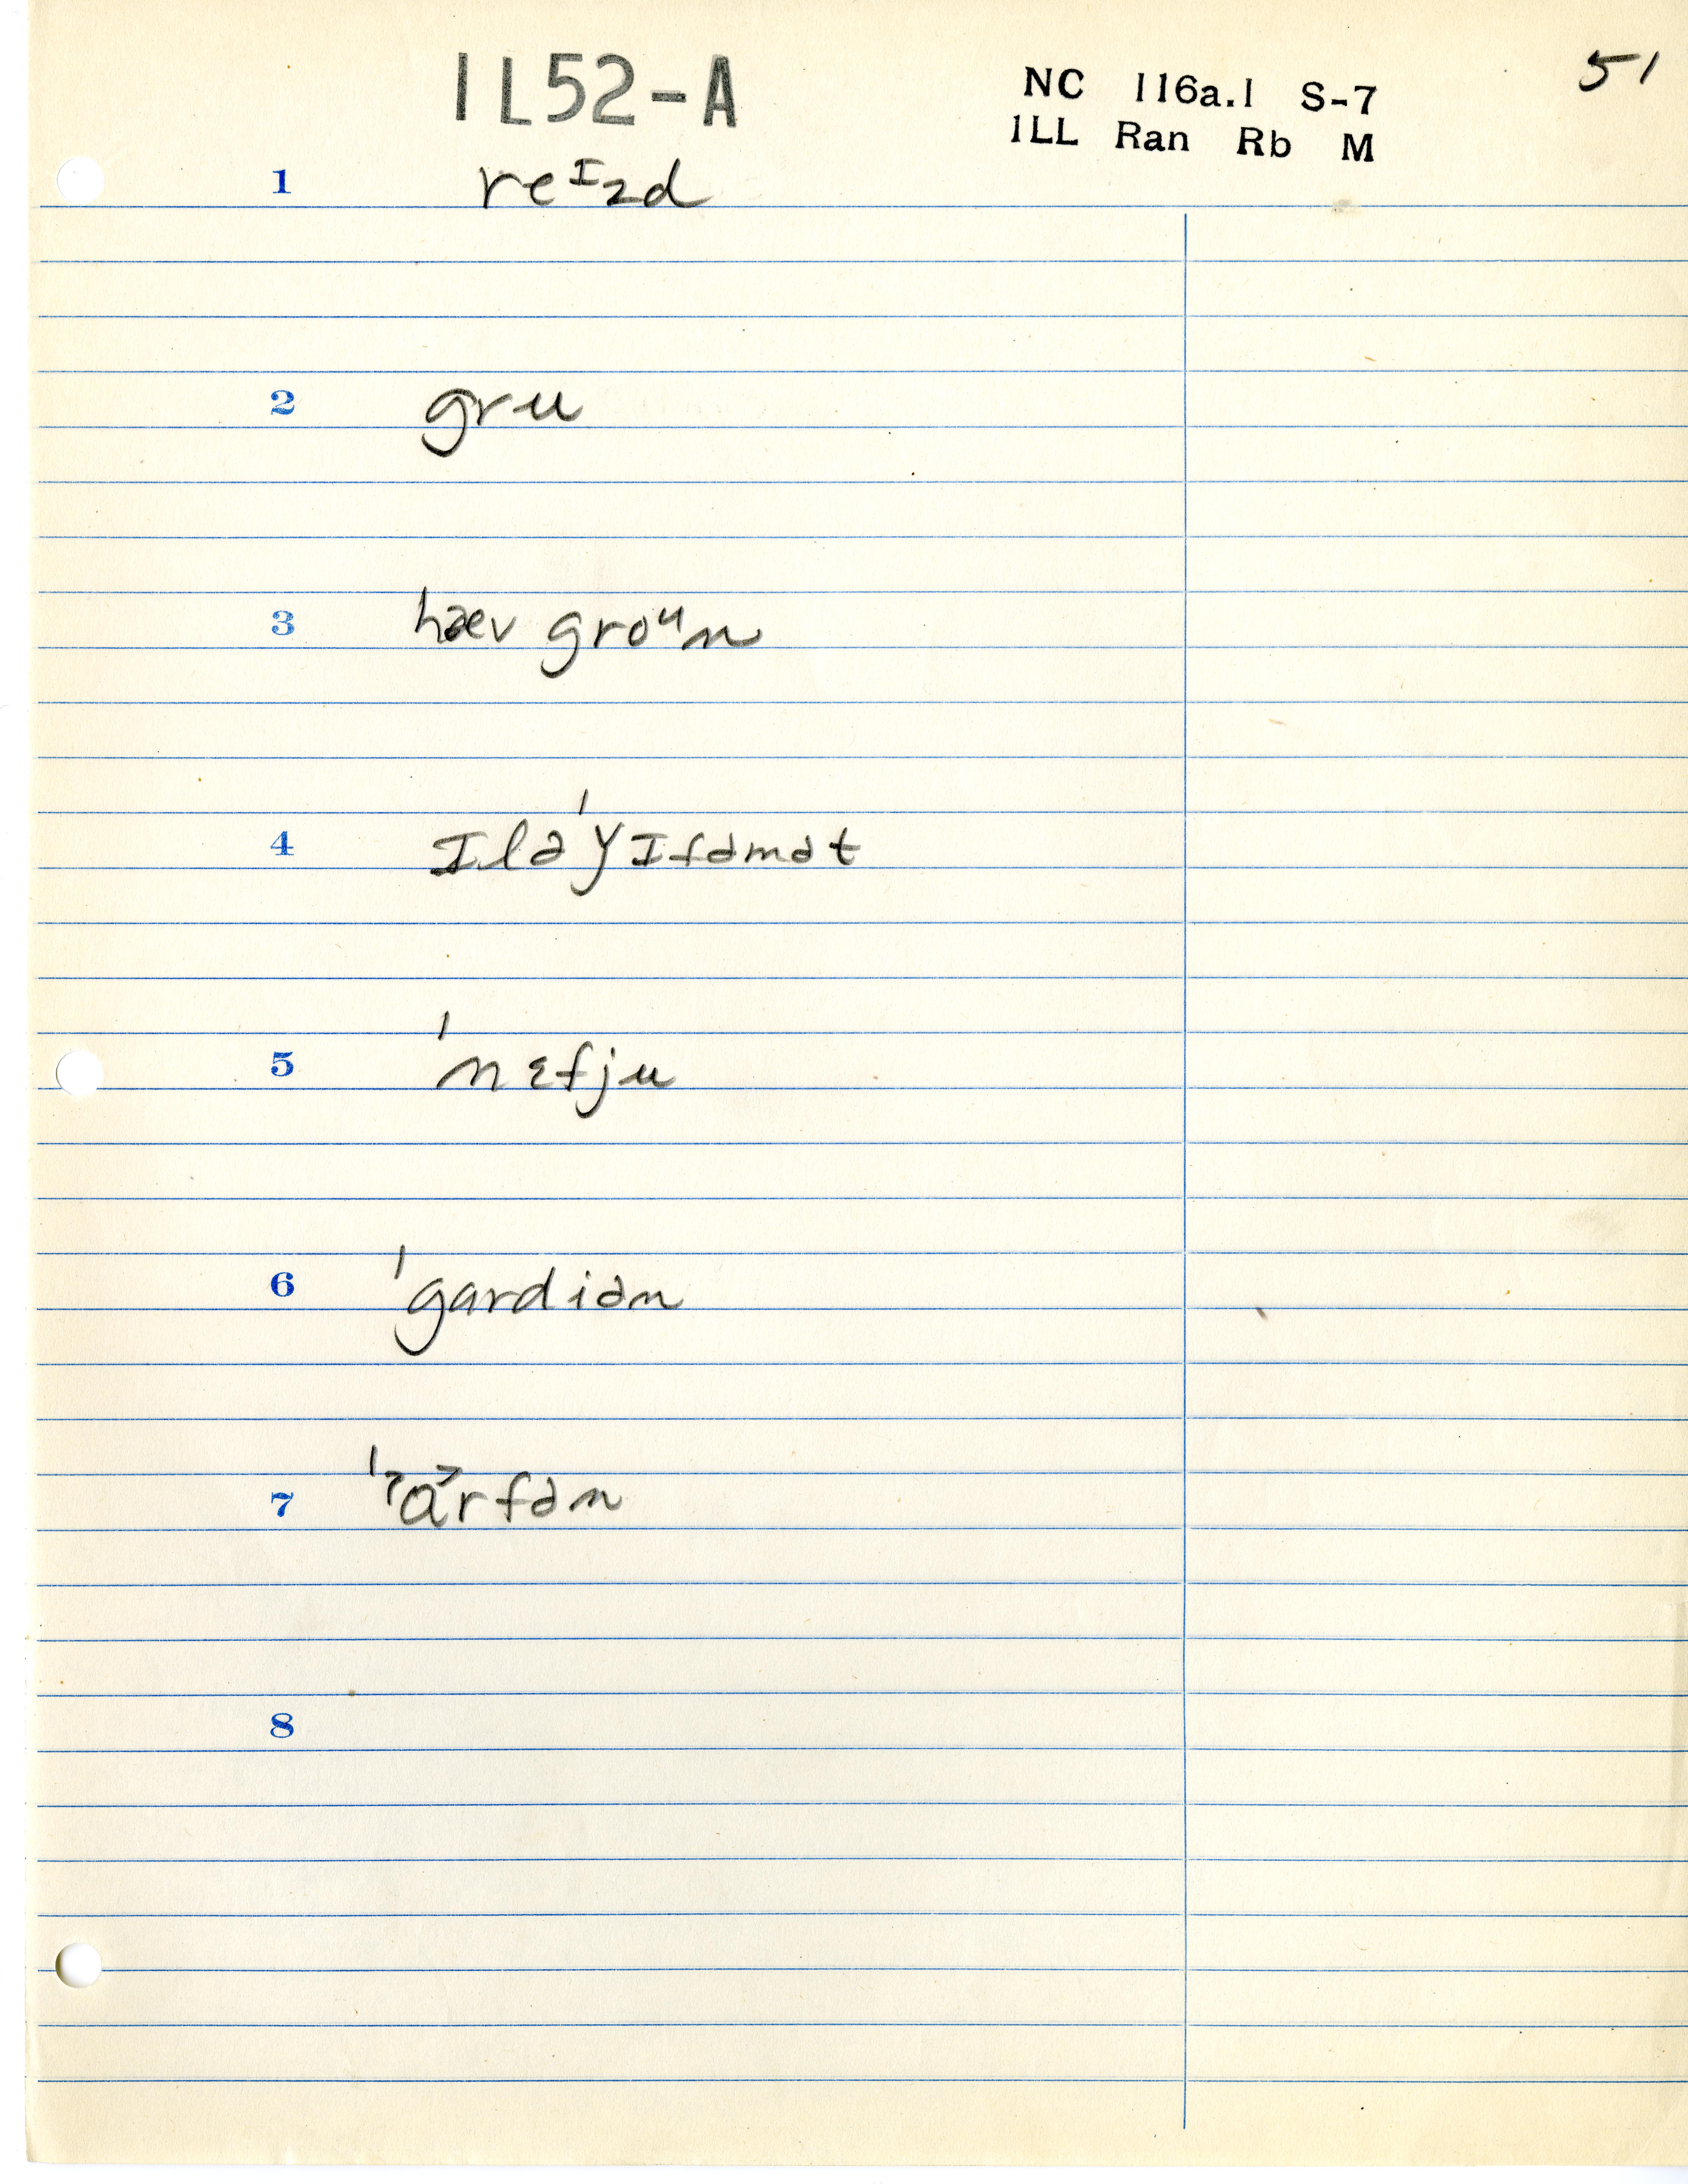 1L52-A
NC 116a.1 S-7
51
1LL Ran Rb M
1 reᴵzd
2 gru
3 hæv groᵘn
4 ɪlə'ɣɪfəmət
5 'nɛfju
6 'gardiən
7 'ˀɑ˃rfən
8